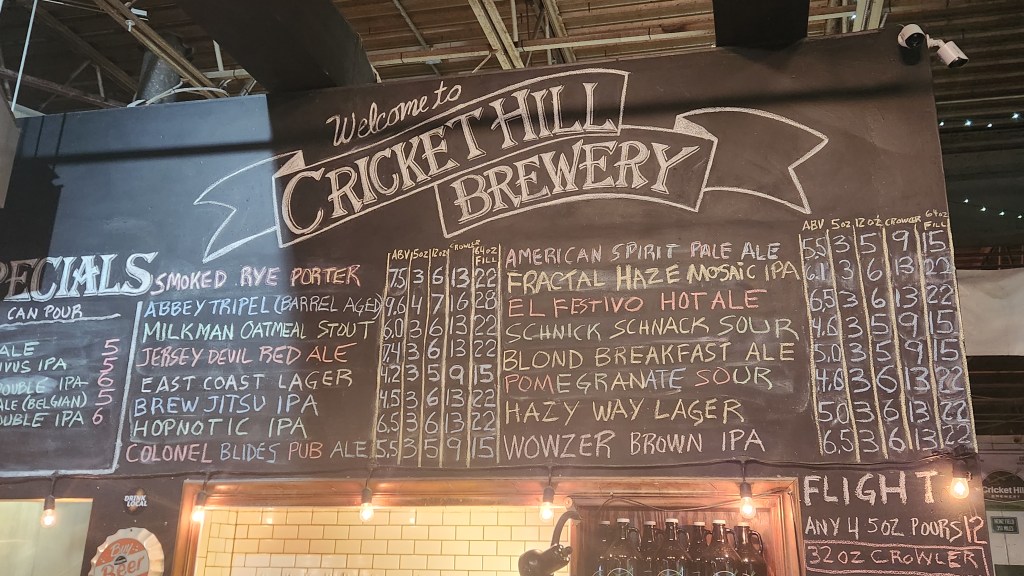 Welcome to
CRICKET HILL
BREWERY
PECIALS
CAN POUR
ALE 5
IVUS IPA 5
OUBLE IPA 6
ALE (BELGIAN) 5
OUBLE IPA 6
ABV 5oz 12oz CROWLER 64oz FILL
SMOKED RYE PORTER 7.5 3 6 13 22
ABBEY TRIPEL (BARREL AGED) 9.6 4 7 16 28
MILKMAN OATMEAL STOUT 6.0 3 6 13 22
JERSEY DEVIL RED ALE 7.4 3 6 13 22
EAST COAST LAGER 4.2 3 5 9 15
BREW JITSU IPA 4.5 3 6 13 22
HOPNOTIC IPA 6.5 3 6 13 22
COLONEL BLIDES PUB ALE 5.5 3 5 9 15
ABV 5oz 12oz CROWLER 64oz FILL
AMERICAN SPIRIT PALE ALE 5.5 3 5 9 15
FRACTAL HAZE MOSAIC IPA 6.1 3 6 13 22
EL FESTIVO HOT ALE 6.5 3 6 13 22
SCHNICK SCHNACK SOUR 4.6 3 5 9 15
BLOND BREAKFAST ALE 5.0 3 5 9 15
POMEGRANATE SOUR 4.0 3 6 13 22
HAZY WAY LAGER 5.0 3 6 13 22
WOWZER BROWN IPA 6.5 3 6 13 22
FLIGHT
ANY 4 5OZ POURS 12
32 OZ CROWLER
DRINK LOCAL
Beer
Cricket Hill